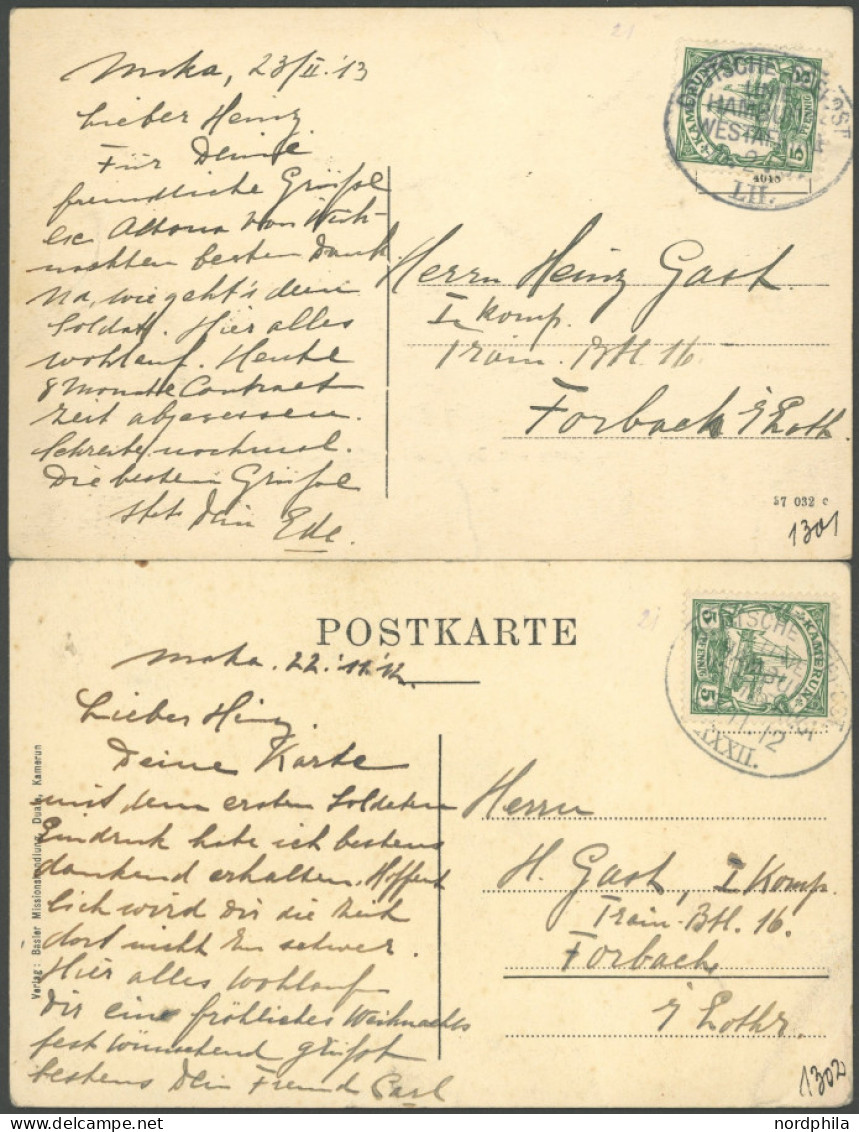 21
23/II. '13
Lieber Heinz.
Für Deine
freundliche Grüße
Altona von Weih-
nachten besten Dank
Na, wie geht's dem
Soldat. Hier alles
wohlauf. Heute
8 Monate Contract
zeit abgesessen.
Schreibe nochmal.
Die besten Grüße
stets Dein Ede.
KAMERUN
5
PFENNIG
5
DEUTSCHE SEEPOST
HAMBURG
LII.
4015
Herrn Heinz Gast.
I Komp.
Train. Btl. 16
Forbach i/Loth.
37 032 c
1301
POSTKARTE
21
22.'11.'12.
Lieber Heinz.
Deine Karte
mit dem ersten Soldaten
Eindruck habe ich bestens
dankend erhalten. Hoffent
lich wird Dir die Zeit
dort nicht zu schwer.
Hier alles wohlauf
Dir ein fröhliches Weihnachts
fest wünschend grüßt
bestens Dein Freund Carl
Verlag: Basler Missionshandlung, Duala, Kamerun
5
PFENNIG
5
KAMERUN
DEUTSCHE SEEPOST
11.12
Herrn
H. Gast, I Komp.
Train-Btl. 16.
Forbach
i/Lothr.
1302
www.delcampe.net
nordphila